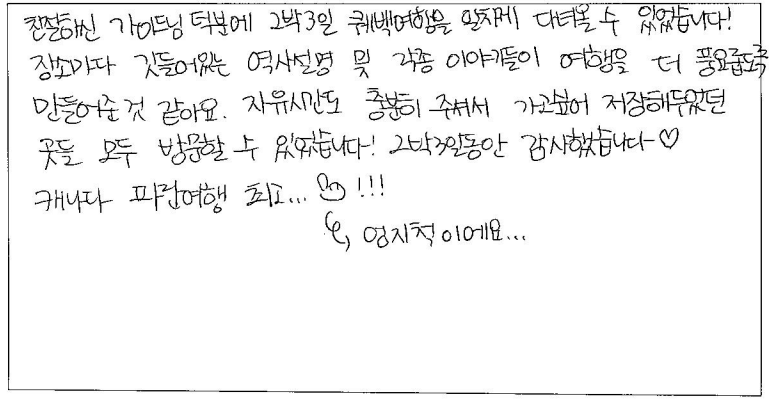 친절하신 가이드님 덕분에 2박3일 퀘백여행을 알차게 다녀올 수 있었습니다!
장소마다 깃들어있는 역사설명 및 각종 이야기들이 여행을 더 풍요롭도록
만들어준 것 같아요. 자유시간도 충분히 주셔서 가고싶어 저장해두었던
곳들 모두 방문할 수 있었습니다! 2박3일동안 감사했습니다~♡
캐나다 파란여행 최고... !!!
엄지척이에요...